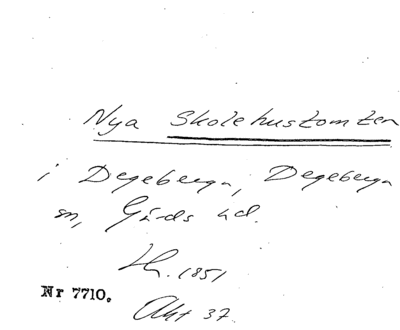 Nya Skolehustomten
i Degeberga, Degeberga
sn, Gärds hd.
1851
Nr 7710.
Akt 37.